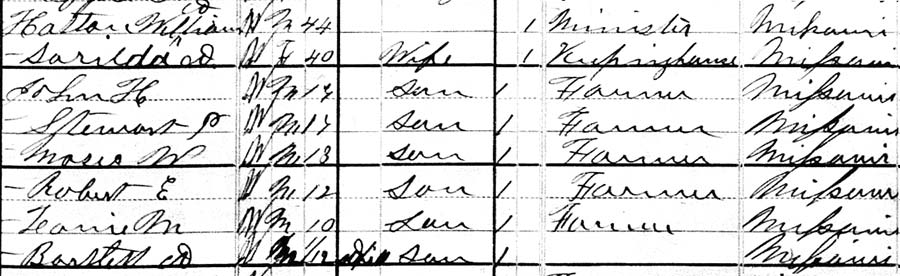 Hatton William W M 44 1 Minister Missouri
- Sarilda D. W F 40 Wife 1 Keepinghouse Missouri
John H W M 17 Son 1 Farmer Missouri
- Stewart P W M 17 Son 1 Farmer Missouri
- Moses W W M 13 Son 1 Farmer Missouri
- Robert E W M 12 Son 1 Farmer Missouri
- M W M 10 Son 1 Farmer Missouri
- Bartlett D W M /12 Son 1 Missouri